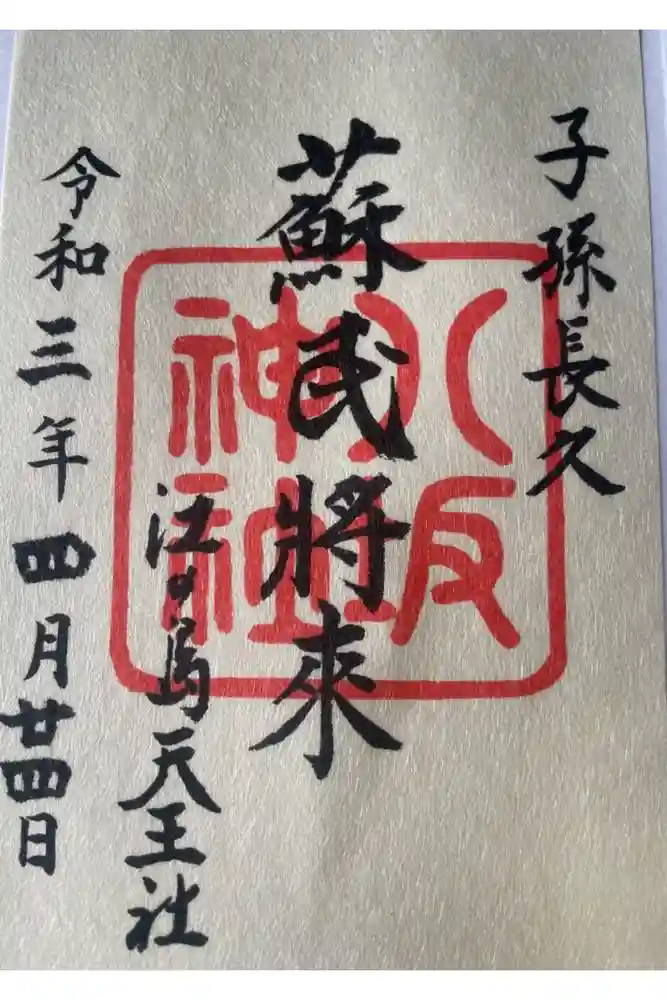 子孫長久
蘇民將來
八坂神社
江の島天王社
令和三年四月廿四日